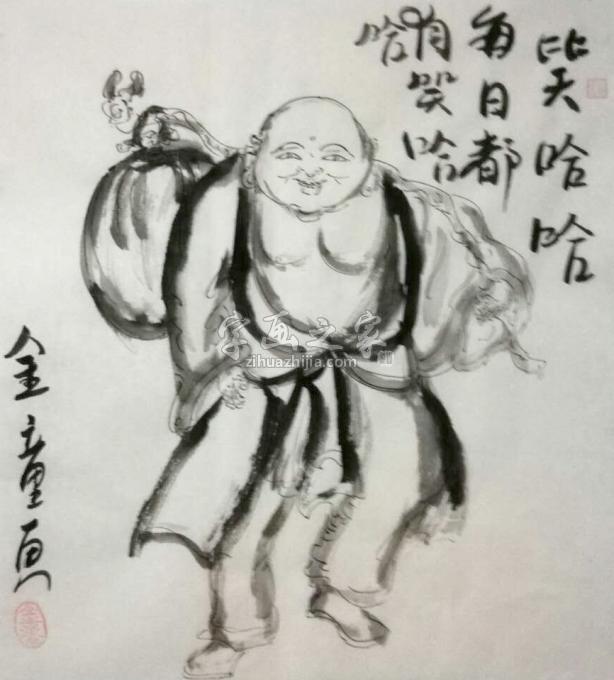 笑哈哈
每日都
有笑哈
哈
金童画
字画之家
zihuazhijia.com